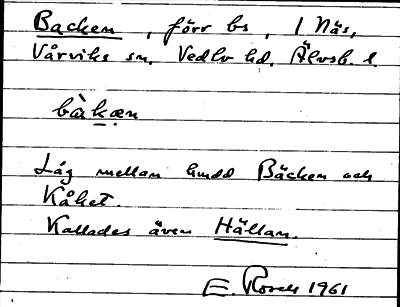 Backen, förr bs, 1 Näs,
Vårviks sn. Vedbo hd. Älvsb. l.
bàkæn
Låg mellan hmdd Bäcken och
Kåket.
Kallades även Hällan.
E. 1961